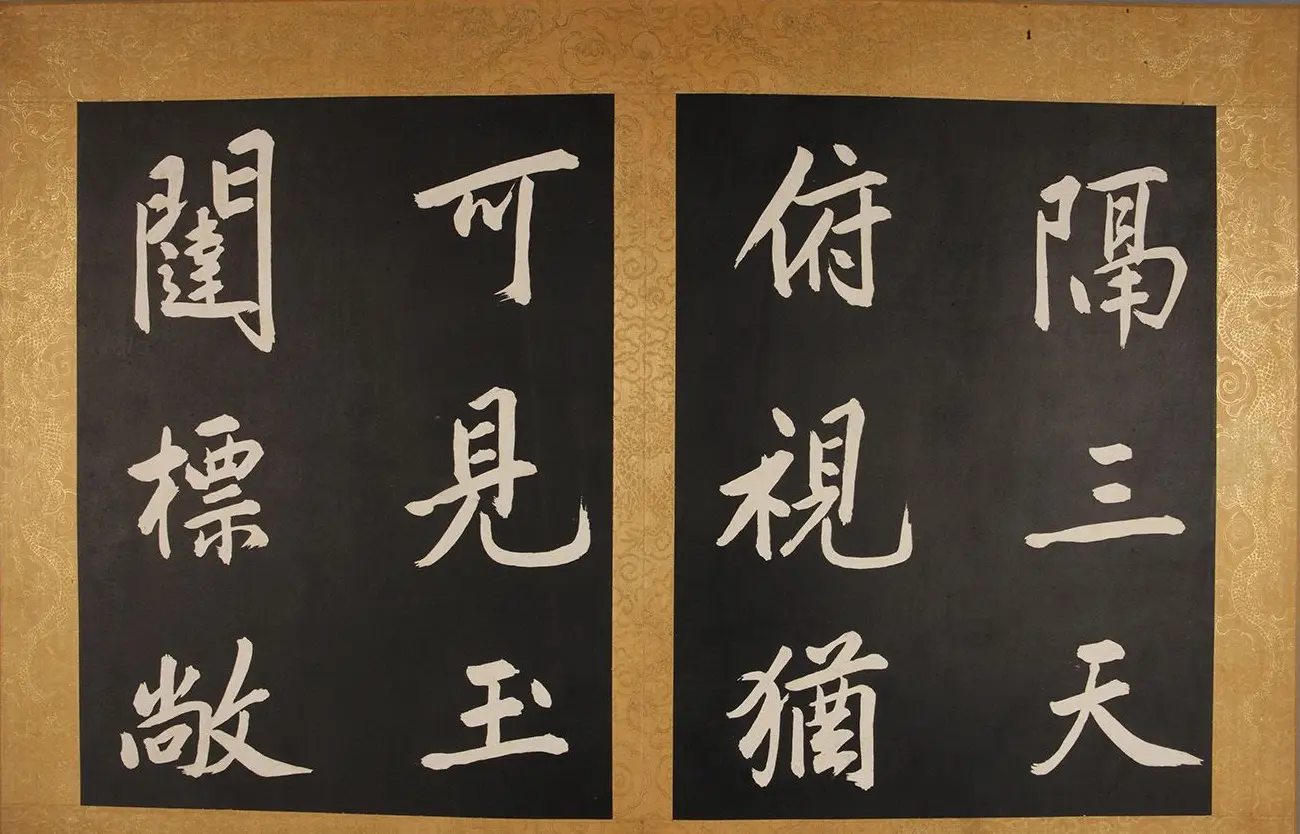 隔三天
俯視猶
可見玉
闥標敞